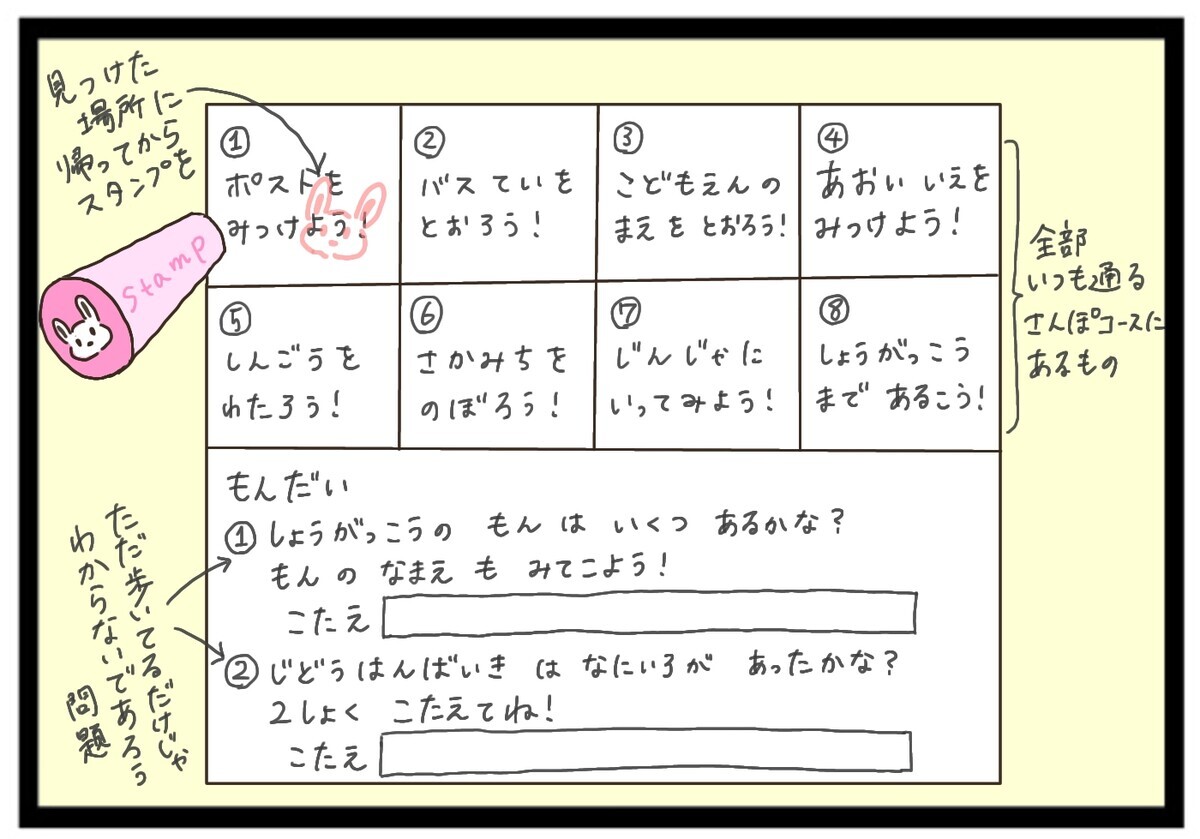 見つけた
場所に
帰ってから
スタンプを
stamp
①
ポストを
みっけよう!
②
バスていを
とおろう!
③
こどもえんの
まえを とおろう!
④
あおい いえを
みっけよう!
⑤
しんごうを
わたろう!
⑥
さかみちを
のぼろう!
⑦
じんじゃに
いってみよう!
⑧
しょうがっこう
まで あるこう!
全部
いつも通る
さんぽコースに
あるもの
もんだい
① しょうがっこうの もん は いくつ あるかな?
もん の なまえ も みてこよう!
こたえ
② じどうはんばいき は なにいろが あったかな?
2しょく こたえてね!
こたえ
ただ歩いてるだけじゃ
わからないであろう
問題